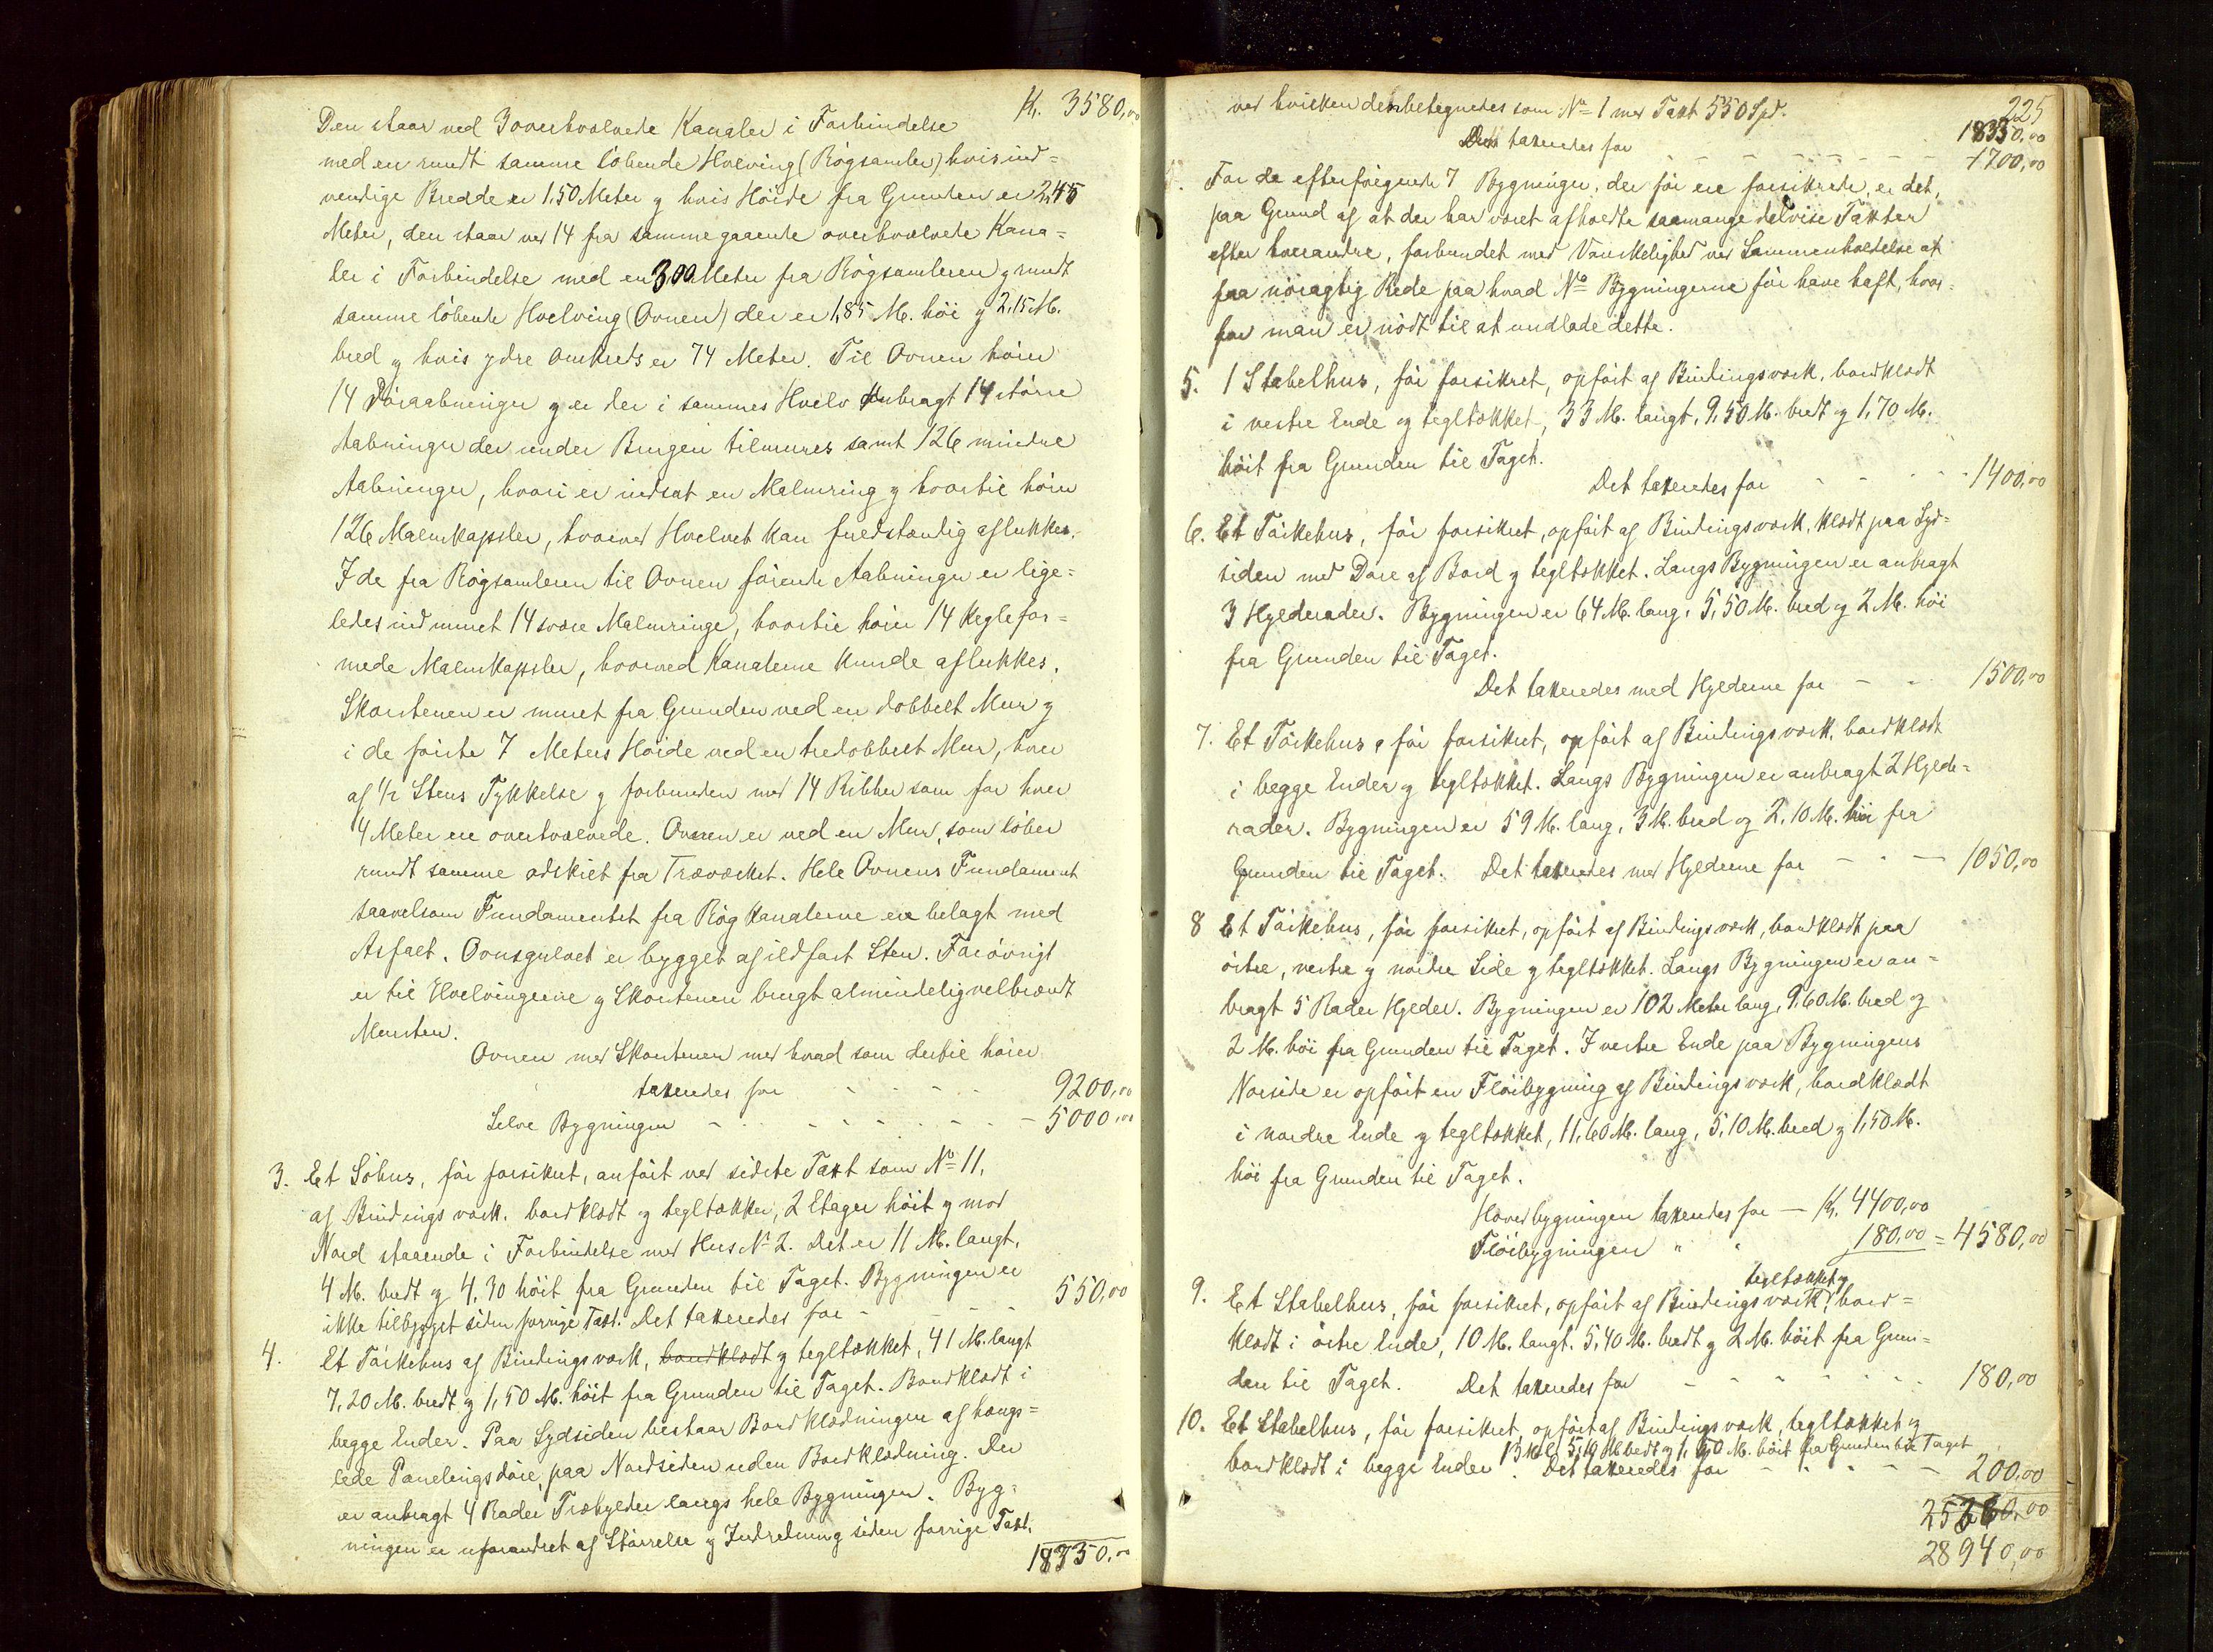 Kr. 3580,00
Den staar ved 3 overhvælvede Kanaler i Forbindelse
med en rundt samme löbende Hvelving (Rögsamler) hvis ind=
vendige Bredde er 1,50 Meter og hvis Höide fra Grunden er 2,45
Meter, den staar ved 14 fra samme gaaende overhvælvede Kana=
ler i Forbindelse med en 3,00 Meter fra Rögsamleren og rundt
samme löbende Hvelving (Ovnen) der er 1,85 M. höi og 2,15 M.
bred og hvis ydre Omkreds er 74 Meter. Til Ovnen hörer
14 Döraabninger og er der i sammes Hvelv anbragt 14 större
Aabninger der under Brugen tilmures samt 126 mindre
Aabninger, hvori er indsat en Malmring og hvortil hörer
126 Malmkapsler, hvorved Hvelvet kan fuldstændig aflukkes.
I de fra Rögsamleren til Ovnen förende Aabninger er lige=
ledes indmuret 14 svære Malmringe, hvortil hörer 14 Keglefor=
mede Malmkapsler, hvorved Kanalerne kunde aflukkes.
Skorstenen er muret fra Grunden ved en dobbelt Mur og
i de förste 7 Meters Höide ved en tredobbelt Mur, hver
af 1/2 Stens Tykkelse og forbunden med 14 Ribber som for hver
4 Meter ere overhvælvede. Ovnen er ved en Mur, som löber
rundt samme adskilt fra Træværket. Hele Ovnens Fundament
saavelsom Fundamentet fra Rög Kanalerne ere belagt med
Asfalt. Ovnsgulvet er bygget af ildfast Sten. Forövrigt
er til Hvelvingerne og Skorstenen brugt almindelig velbrændt
Mursten.
Ovnen med Skorstenen med hvad som dertil hörer
taxeredes for - - - - 9200,00
Selve Bygningen - - - - - - - - 5000,00
3. Et Söhus, för forsikret, anfört ved sidste Taxt som No 11,
af Bindingsværk, bordklædt og tegltækket, 2 Etager höit og mod
Nord staaende i Forbindelse med Hus No 2. Det er 11 M. langt,
4 M. bredt og 4,30 höit fra Grunden til Taget. Bygningen er
ikke tilbygget siden forrige Taxt. Det taxeredes for - - - - 550,00
4. Et Törkehus af Bindingsværk, bordklædt og tegltækket, 41 M. langt
7,20 M. bredt og 1,50 M. höit fra Grunden til Taget. Bordklædt i
begge Ender. Paa Sydsiden bestaar Bordklædningen af hængs=
lede Panelingsdöre, paa Nordsiden uden Bordklædning. Der
er anbragt 4 Rader Træhylder langs hele Bygningen. Byg=
ningen er uforandret af Störrelse og Indredning siden forrige Taxt,
18330,00
225
ved hvilken den betegnedes som No 1 med Taxt 550 Spd.
18330,00
Den taxeredes for - - - - - - - 1700,00
For de efterfölgende 7 Bygninger, der för ere forsikrede, er det,
paa Grund af at der har været afholdte saamange delvise Taxter
efter hverandre, forbundet med Vanskelighed ved Sammenholdelse at
faa nöiagtig Rede paa hvad No Bygningerne för have haft, hvor=
for man er nödt til at undlade dette.
5. 1 Stabelhus, för forsikret, opfört af Bindingsværk, bordklædt
i vestre Ende og tegltækket, 33 M. langt, 9,50 M. bredt og 1,70 M.
höit fra Grunden til Taget.
Det taxeredes for - - - - 1400,00
6. Et Törkehus, för forsikret, opfört af Bindingsværk, klædt paa Syd=
siden med Döre af Bord og tegltækket. Langs Bygningen er anbragt
3 Hylderader. Bygningen er 64 M. lang, 5,50 M. bred og 2 M. höi
fra Grunden til Taget.
Det taxeredes med Hylderne for - - 1500,00
7. Et Törkehus, för forsikret, opfört af Bindingsværk, bordklædt
i begge Ender og tegltækket. Langs Bygningen er anbragt 2 Hylde=
rader. Bygningen er 59 M. lang, 3 M. bred og 2,10 M. höi fra
Grunden til Taget. Det taxeredes med Hylderne for - - - 1050,00
8 Et Törkehus, för forsikret, opfört af Bindingsværk, bordklædt paa
östre, vestre og nordre Side og tegltækket. Langs Bygningen er an=
bragt 5 Rader Hylder. Bygningen er 102 Meter lang, 9,60 M. bred og
2 M. höi fra Grunden til Taget. I vestre Ende paa Bygningens
Norside er opfört en Flöibygning af Bindingsværk, bordklædt
i nordre Ende og tegltækket, 11,60 M. lang, 5,10 M. bred og 1,50 M.
höi fra Grunden til Taget.
Hovedbygningen taxeredes for - Kr. 4400,00
Flöibygningen " " 180,00 = 4580,00
tegltækket og
9. Et Stabelhus, för forsikret, opfört af Bindingsværk, bord=
klædt i östre Ende, 10 M. langt, 5,40 M. bredt og 2 M. höit fra Grun=
den til Taget. Det taxeredes for - - - - - - - 180,00
10. Et Stabelhus, för forsikret, opfört af Bindingsværk, tegltækket og
5,10 M. bredt og 1,50 M. höit fra Grunden til Taget
bordklædt i begge Ender. Det taxeredes for - - - - - 200,00
28940,00